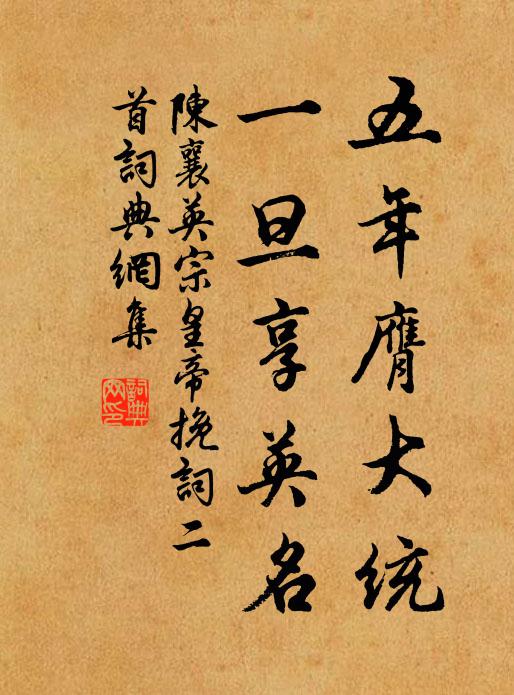 五年膺大統
一旦享英名
陳襄英宗皇帝挽詞二
首詞典網集
詞典
网印